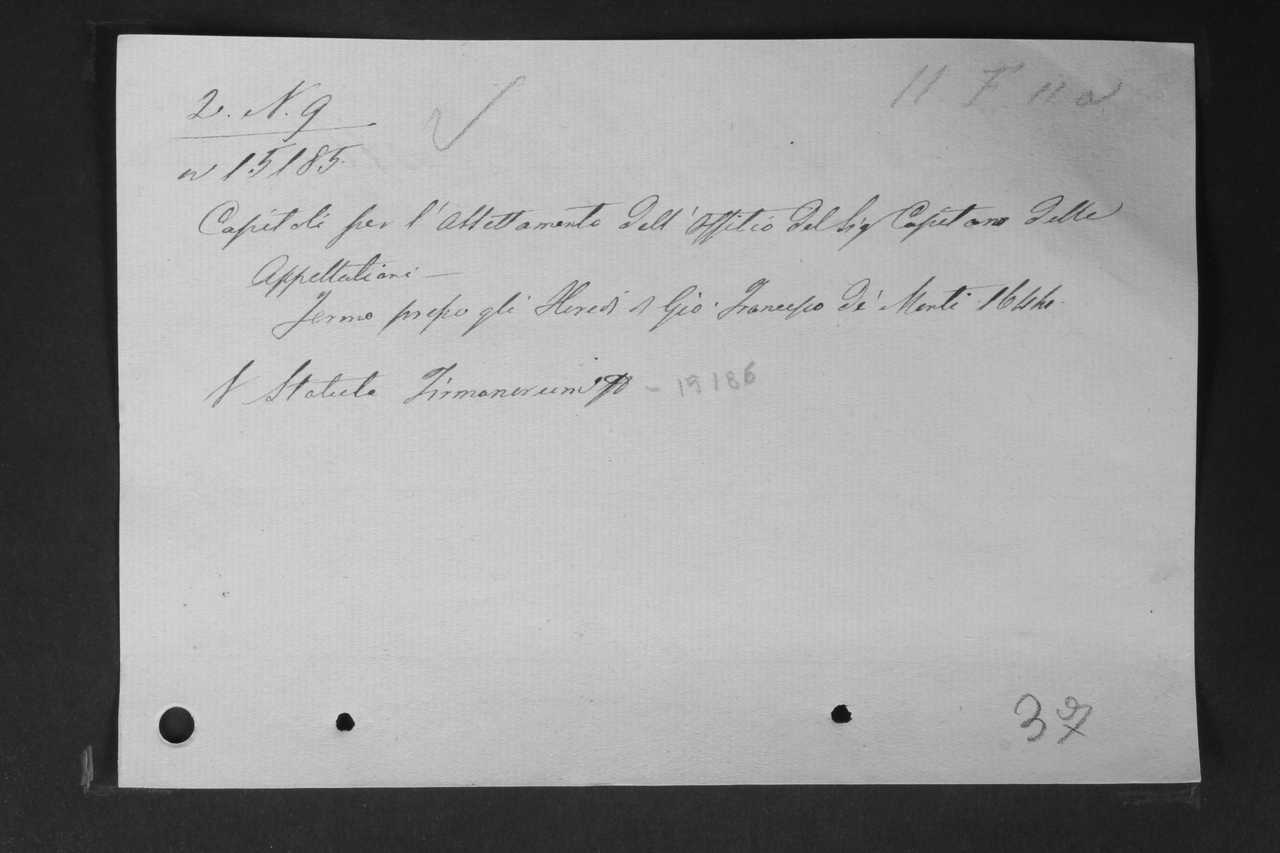 2. N. 9
11 F 11 a
n 15185
Capitoli per l'Assettamento dell'Offitio del Sig Capitano delle
Appellationi —
Fermo presso gli Heredi d Gio: Francesco de' Monti 1644.
V Statuta Firmanorum — 15186
37